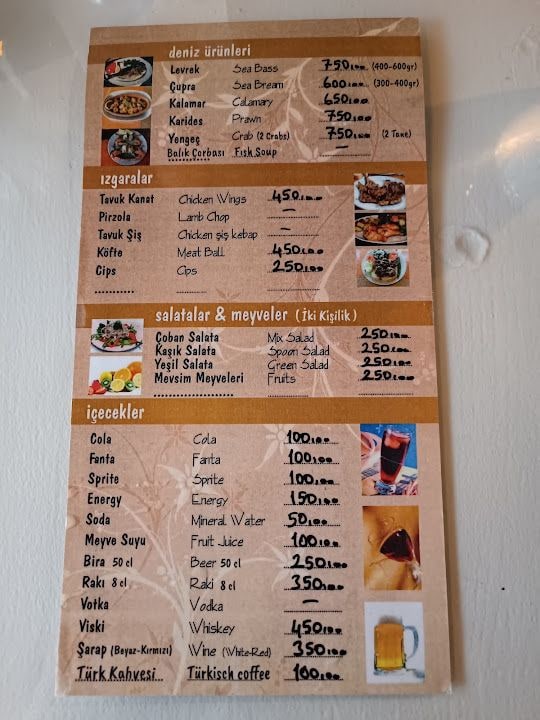 deniz ürünleri
Levrek Sea Bass 750,00 (400-600gr)
Çupra Sea Bream 600,00 (300-400gr)
Kalamar Calamary 650,00
Karides Prawn 750,00
Yengeç Crab (2 Crabs) 750,00 (2 Tane)
Balık Çorbası Fısh Soup —
ızgaralar
Tavuk Kanat Chicken Wings 450,00
Pirzola Lamb Chop —
Tavuk Şiş Chicken şiş kebap —
Köfte Meat Ball 450,00
Cips Cips 250,00
salatalar & meyveler (İki Kişilik)
Çoban Salata Mix Salad 250,00
Kaşık Salata Spoon Salad 250,00
Yeşil Salata Green Salad 250,00
Mevsim Meyveleri Fruits 250,00
içecekler
Cola Cola 100,00
Fanta Fanta 100,00
Sprite Sprite 100,00
Energy Energy 150,00
Soda Mineral Water 50,00
Meyve Suyu Fruit Juice 100,00
Bira 50 cl Beer 50 cl 250,00
Rakı 8 cl Raki 8 cl 350,00
Votka Vodka —
Viski Whiskey 450,00
Şarap (Beyaz-Kırmızı) Wine (White-Red) 350,00
Türk Kahvesi Türkisch coffee 100,00